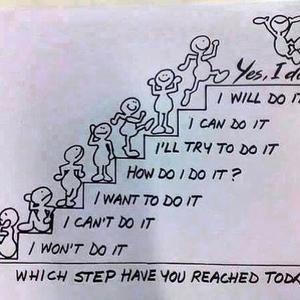 Yes, I d
I WILL DO IT
I CAN DO IT
I'LL TRY TO DO IT
HOW DO I DO IT?
I WANT TO DO IT
I CAN'T DO IT
I WON'T DO IT
WHICH STEP HAVE YOU REACHED TODA